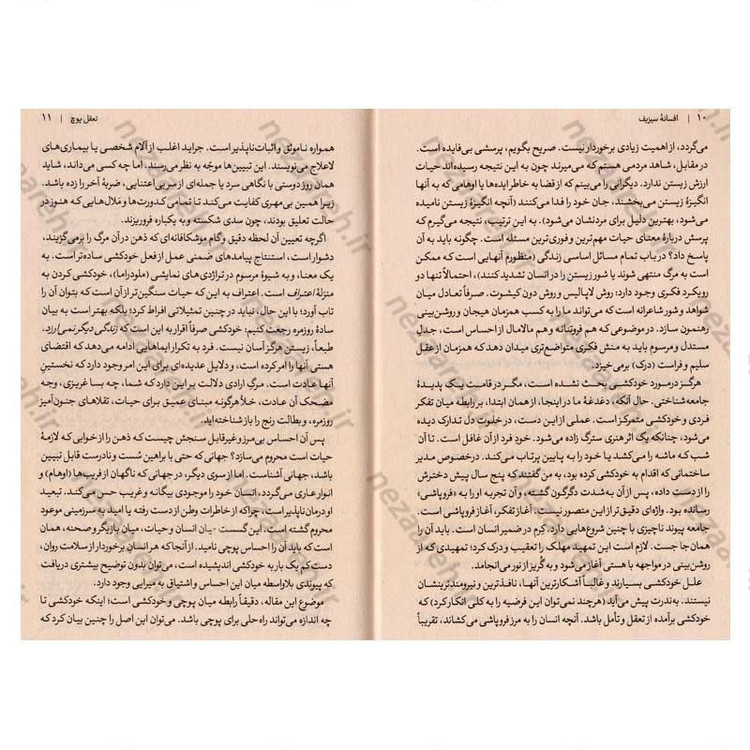 ۱۰ | افسانهٔ سیزیف
می‌گردد، از اهمیت زیادی برخوردار نیست. صریح بگویم، پرسشی بی‌فایده است.
در مقابل، شاهد مردمی هستم که می‌میرند چون به این نتیجه رسیده‌اند حیات
ارزش زیستن ندارد. دیگرانی را می‌بینم که از قضا به خاطر ایده‌ها یا اوهامی که به آنها
انگیزهٔ زیستن می‌بخشند، جان خود را فدا می‌کنند (آنچه انگیزهٔ زیستن نامیده
می‌شود، بهترین دلیل برای مردنشان می‌شود). به این ترتیب، نتیجه می‌گیرم که
پرسش دربارهٔ معنای حیات مهم‌ترین و فوری‌ترین مسئله است. چگونه باید به آن
پاسخ داد؟ در باب تمام مسائل اساسی زندگی (منظورم آنهایی است که ممکن
است به مرگ منتهی شوند یا شور زیستن را در انسان تشدید کنند)، احتمالاً تنها دو
رویکرد فکری وجود دارد: روش لاپالیس و روش دون کیشوت. صرفاً تعادل میان
شواهد و شور شاعرانه است که می‌تواند ما را به کسب همزمان هیجان و روشن‌بینی
رهنمون سازد. در موضوعی که هم فروتنانه و هم مالامال از احساس است، جدلِ
مستدل و مرسوم باید به منش فکری متواضع‌تری میدان دهد که همزمان از عقل
سلیم و فراست (درک) برمی‌خیزد.
هرگز در مورد خودکشی بحث نشده است، مگر در قامت یک پدیدهٔ
جامعه‌شناختی. حال آنکه، دغدغهٔ ما در اینجا، از همان ابتدا، بر رابطه میان تفکر
فردی و خودکشی متمرکز است. عملی از این دست، در خلوت دل تدارک دیده
می‌شود، چنانکه یک اثر هنری سترگ زاده می‌شود. خود فرد از آن غافل است. تا آن
شب که ماشه را می‌کشد یا خود را به پایین پرتاب می‌کند. درخصوص مدیر
ساختمانی که اقدام به خودکشی کرده بود، به من گفتند که پنج سال پیش دخترش
را از دست داده، پس از آن به‌شدت دگرگون گشته، و آن تجربه او را به «فروپاشی»
رسانده بود. واژه‌ای دقیق‌تر از این متصور نیست. آغاز تفکر، آغاز فروپاشی است.
جامعه پیوند ناچیزی با چنین شروع‌هایی دارد. کِرم در ضمیر انسان است. باید آن را
همان‌جا جست. لازم است این تمهید مهلک را تعقیب و درک کرد؛ تمهیدی که از
روشن‌بینی در مواجهه با هستی آغاز می‌شود و به گریز از نور می‌انجامد.
علل خودکشی بسیارند و غالباً آشکارترین آنها، نافذترین و نیرومندترینشان
نیستند. به‌ندرت پیش می‌آید (هرچند نمی‌توان این فرضیه را به کلی انکار کرد) که
خودکشی برآمده از تعقل و تأمل باشد. آنچه انسان را به مرز فروپاشی می‌کشاند، تقریباً
تعقل پوچ | ۱۱
همواره ناموثق و اثبات‌ناپذیر است. جراید اغلب از آلام شخصی یا بیماری‌های
لاعلاج می‌نویسند. این تبیین‌ها موجّه به نظر می‌رسند. اما چه کسی می‌داند، شاید
همان روز دوستی با نگاهی سرد یا جمله‌ای از سر بی‌اعتنایی، ضربهٔ آخر را زده باشد.
زیرا همین بی‌مهری کفایت می‌کند تا تمامی کدورت‌ها و مَلال‌هایی که هنوز در
حالت تعلیق بودند، چون سدی شکسته و به یکباره فروریزند.
اگرچه تعیین آن لحظه دقیق و گام موشکافانه‌ای که ذهن در آن مرگ را برمی‌گزیند،
دشوار است، استنتاج پیامدهای ضمنی عمل از فعل خودکشی ساده‌تر است. به
یک معنا، و به شیوهٔ مرسوم در تراژدی‌های نمایشی (ملودراما)، خودکشی کردن به
منزلهٔ اعتراف است. اعتراف به این که حیات سنگین‌تر از آن است که بتوان آن را
تاب آورد؛ با این حال، نباید در چنین تمثیلاتی افراط کرد؛ بلکه بهتر است به بیان
سادهٔ روزمره رجعت کنیم: خودکشی صرفاً اقرار به این است که زندگی دیگر نمی‌ارزد.
طبعاً، زیستن هرگز آسان نیست. فرد به تکرار ایماهایی ادامه می‌دهد که اقتضای
هستی آنها را امر کرده است، و دلایل عدیده‌ای برای این امر وجود دارد که نخستینِ
آنها عادت است. مرگ ارادی دلالت بر این دارد که شما، چه بسا غریزی، وجه
مضحک آن عادت، خلأ هرگونه مبنای عمیق برای حیات، تقلاهای جنون‌آمیز
روزمره، و بطالت رنج را باز شناخته‌اید.
پس آن احساس بی‌مرز و غیرقابل سنجش چیست که ذهن را از خوابی که لازمهٔ
حیات است محروم می‌سازد؟ جهانی که حتی با براهین سُست و نادرست قابل تبیین
باشد، جهانی آشناست. اما از سوی دیگر، در جهانی که ناگهان از فریب‌ها (اوهام) و
انوار عاری می‌گردد، انسان خود را موجودی بیگانه و غریب حس می‌کند. تبعید
او درمان‌ناپذیر است، چراکه از خاطرات وطن از دست رفته یا امید به سرزمینی موعود
محروم گشته است. این گسست میان انسان و حیات، میان بازیگر و صحنه، همان
است که باید آن را احساس پوچی نامید. از آنجا که هر انسانِ برخوردار از سلامت روان،
دست کم یک بار به خودکشی اندیشیده است، می‌توان بدون توضیح بیشتری دریافت
که پیوندی بلاواسطه میان این احساس و اشتیاق به میرایی وجود دارد.
موضوع این مقاله، دقیقاً رابطه میان پوچی و خودکشی است؛ اینکه خودکشی تا
چه اندازه می‌تواند راه‌حلی برای پوچی باشد. می‌توان این اصل را چنین بیان کرد که